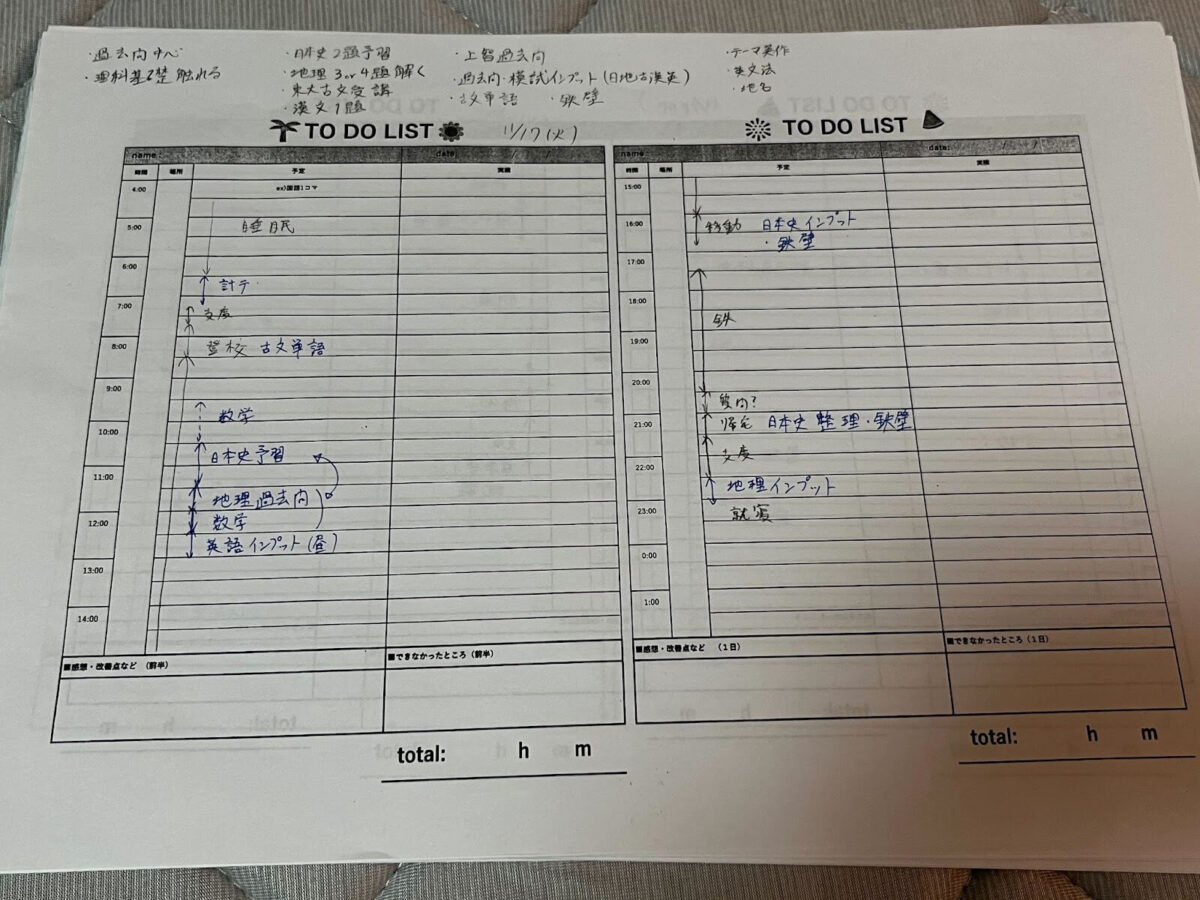 ・過去問中心
・理科基礎触れる
・日本史2題予習
・地理 3or4題解く
・東大古文受講
・漢文1題
・上智過去問
・過去問・模試インプット(日地古漢英)
・古文単語 ・鉄壁
・テーマ英作
・英文法
・地名
TO DO LIST 11/17(火)
name: date:
時間 場所 予定 実績
4:00 ex)国語1コマ
5:00 睡眠
6:00
計テ
7:00 支度
8:00 登校 古文単語
9:00
数学
10:00
日本史予習
11:00
地理過去問
12:00 数学
英語インプット(昼)
13:00
14:00
■感想・改善点など (前半) ■できなかったところ (前半)
total: h m
TO DO LIST
name: date:
時間 場所 予定 実績
15:00
16:00 移動 日本史インプット
・鉄壁
17:00
18:00
鉄
19:00
20:00
質問?
21:00 帰宅 日本史整理・鉄壁
支度
22:00
地理インプット
23:00 就寝
0:00
1:00
■感想・改善点など (1日) ■できなかったところ (1日)
total: h m